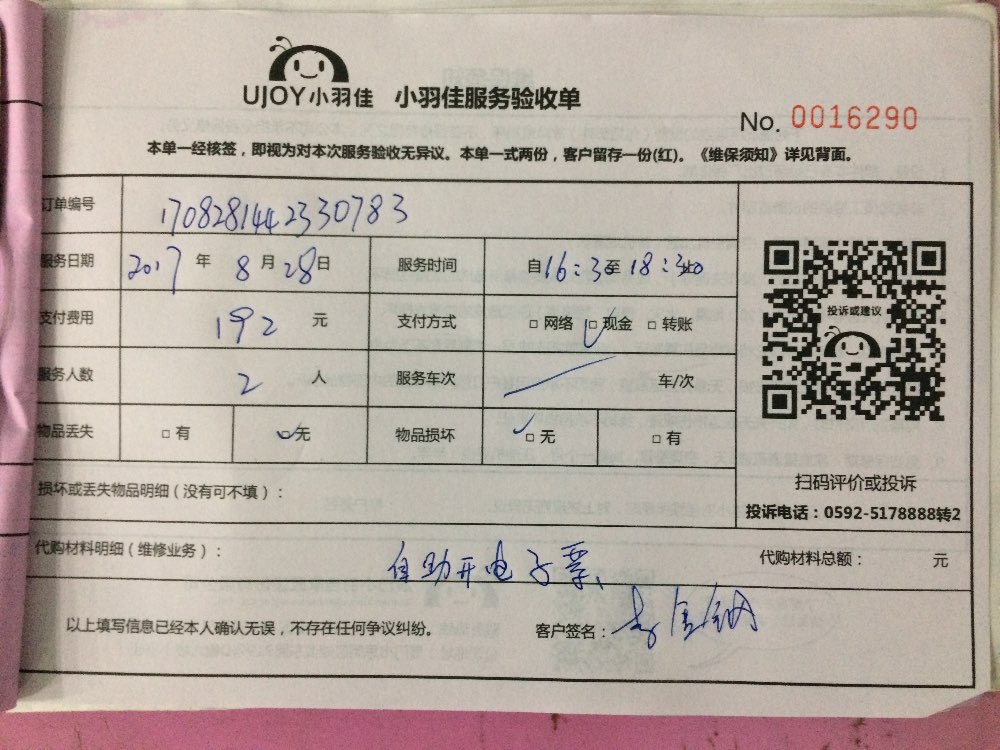 UJOY小羽佳 小羽佳服务验收单
No. 0016290
本单一经核签，即视为对本次服务验收无异议。本单一式两份，客户留存一份(红)。《维保须知》详见背面。
订单编号 1708281442330783
服务日期 2017 年 8 月 28 日 服务时间 自 16:30 至 18:30 止
支付费用 192 元 支付方式 □ 网络 □ 现金 □ 转账
服务人数 2 人 服务车次 车/次
物品丢失 □ 有 □ 无 物品损坏 □ 无 □ 有
投诉或建议
扫码评价或投诉
投诉电话：0592-5178888转2
损坏或丢失物品明细（没有可不填）：
代购材料明细（维修业务）： 自助开电子票、 代购材料总额： 元
以上填写信息已经本人确认无误，不存在任何争议纠纷。 客户签名：